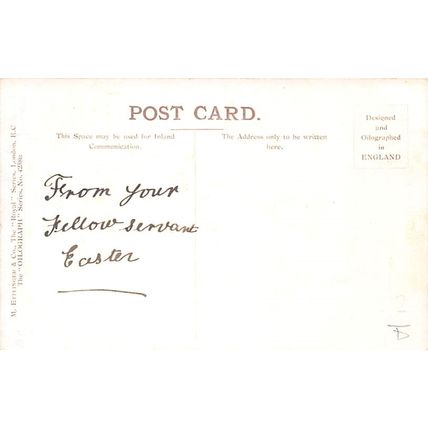 POST CARD.
This Space may be used for Inland
Communication.
The Address only to be written
here.
Designed
and
Oilographed
in
ENGLAND
From your
Fellow servant
Easter
M. ETTLINGER & Co., The "Royal" Series, London, E.C.
The "OILOGRAPH" Series, No.